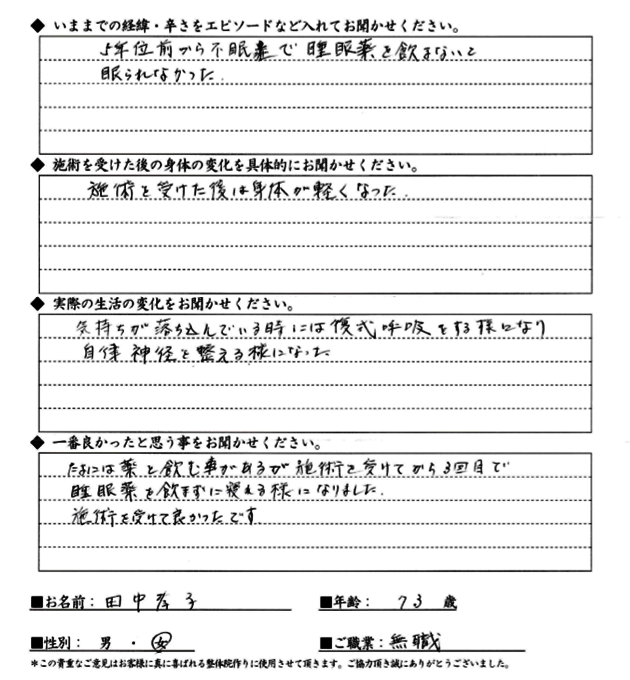 ◆ いままでの経緯・辛さをエピソードなど入れてお聞かせください。
5年位前から不眠症で睡眠薬を飲まないと
眠られなかった.
◆ 施術を受けた後の身体の変化を具体的にお聞かせください。
施術を受けた後は身体が軽くなった.
◆ 実際の生活の変化をお聞かせください。
気持ちが落ち込んでいる時には復式呼吸をする様になり
自律神経を整える様になった
◆ 一番良かったと思う事をお聞かせください。
たまには薬を飲む事があるが施術を受けてから3回目で
睡眠薬を飲まずに寝える様になりました.
施術を受けて良かったです
■お名前： 田中孝子
■年齢： 73 歳
■性別： 男 ・ 女
■ご職業： 無職
＊この貴重なご意見はお客様に真に喜ばれる整体院作りに使用させて頂きます。ご協力頂き誠にありがとうございました。